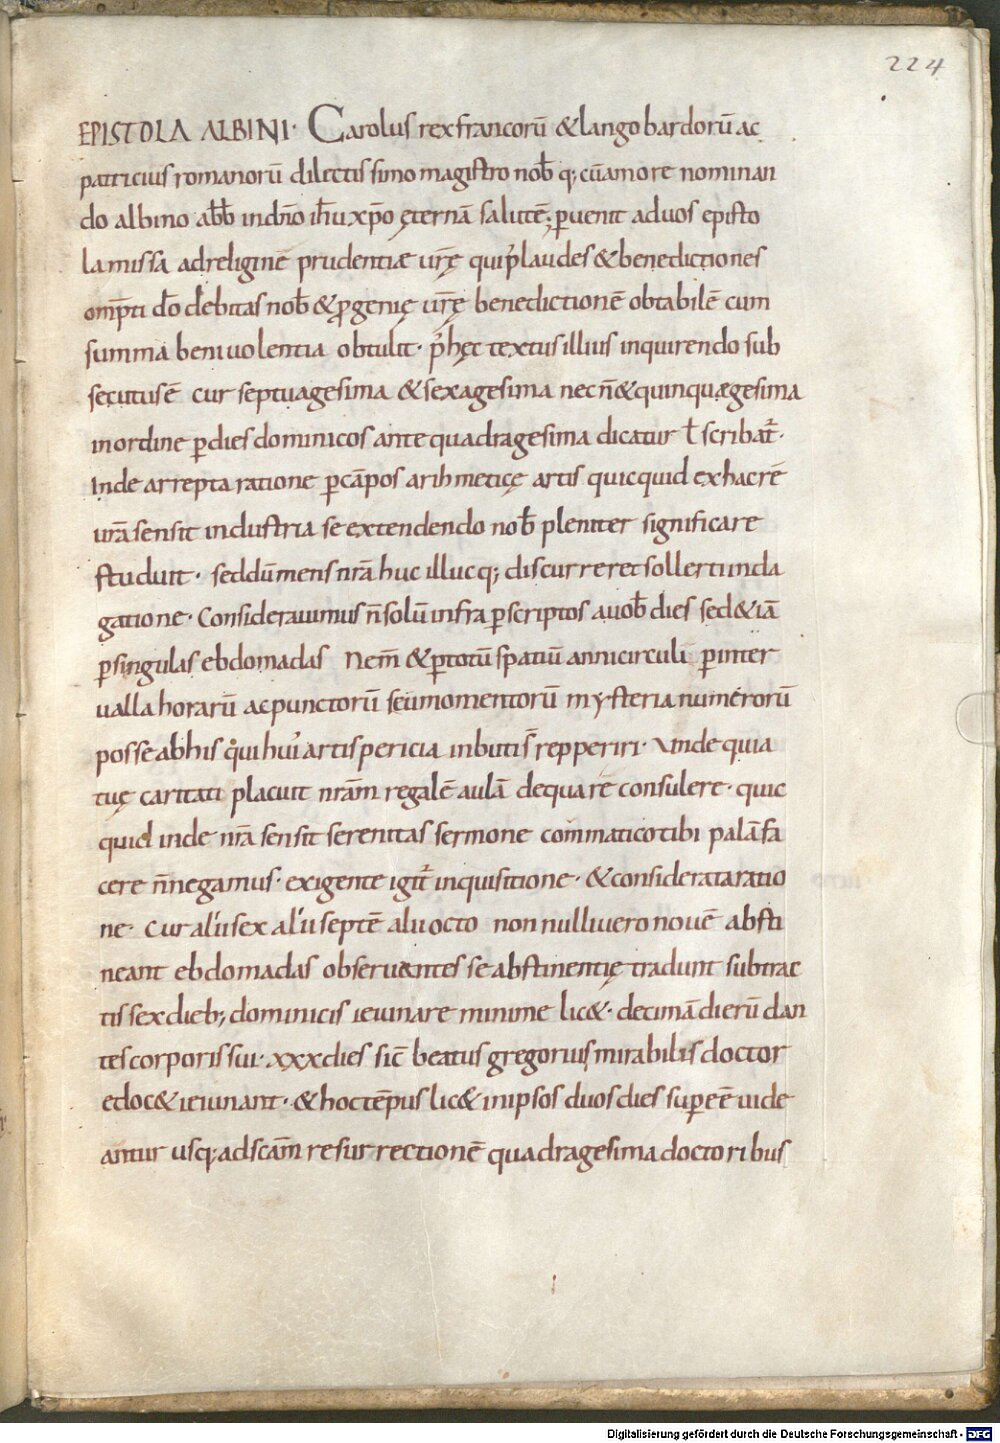 224
EPISTOLA ALBINI· Carolus rex francorū & langobardorū ac
patricius romanorū dilectissimo magistro nob̄ q; cū amore nominan
do albino abb̄ in dn̄o ih̄u xp̄o ęternā salutē; puenit ad uos episto
la missa ad religinē prudentiæ ur̄ę qui p̄ laudes & benedictiones
om̄pti dō debitas nob̄ & ꝓgenię ur̄ę benedictionē obtabilē cum
summa beniuolentia obtulit· p̄ hęc textus illius inquirendo sub
secutus ē cur septuagesima & sexagesima nec n̄ & quinquægesima
in ordine ꝑ dies dominicos ante quadragesima dicatur ł scribat̄·
Inde arrepta ratione ꝑ cāpos arihmeticę artis quicquid ex hac rē
ur̄a sensit industria se extendendo nob̄ pleniter significare
studuit· sed dū mens nr̄a huc illucq; discurreret sollerti inda
gatione· Considerauimus n̄ solū infra ꝑscriptos a uob̄ dies sed & iā
ꝑ singulas ebdomadas Nem̄ & ꝑ totū spatiū anni circuli ꝑ inter
ualla horarū ac punctorū seu momentorū mysteria numerorū
posse ab his qui hui' artis pericia inbuti s̄ repperiri· Unde quia
tuę caritati placuit nr̄am regalē aulā de qua rē consulere· quic
quid inde nr̄a sensit serenitas sermone commatico tibi palā fa
cere n̄ negamus· exigente igit̄ inquisitione· & considerata ratio
ne· Cur alii sex alii septē alii octo non nulli uero nouē absti
neant ebdomadas obseruantes se abstinentię tradunt subtrac
tis sex dieb; dominicis ieiunare minime lic&· decimā dierū dan
tes corporis sui· xxx dies sic̄ beatus gregorius mirabilis doctor
edoc& ieiunant· & hoc tēpus lic& in ipsos duos dies supeē uide
antur usq; ad scām resurrectionē quadragesima doctoribus
Digitalisierung gefördert durch die Deutsche Forschungsgemeinschaft - DFG